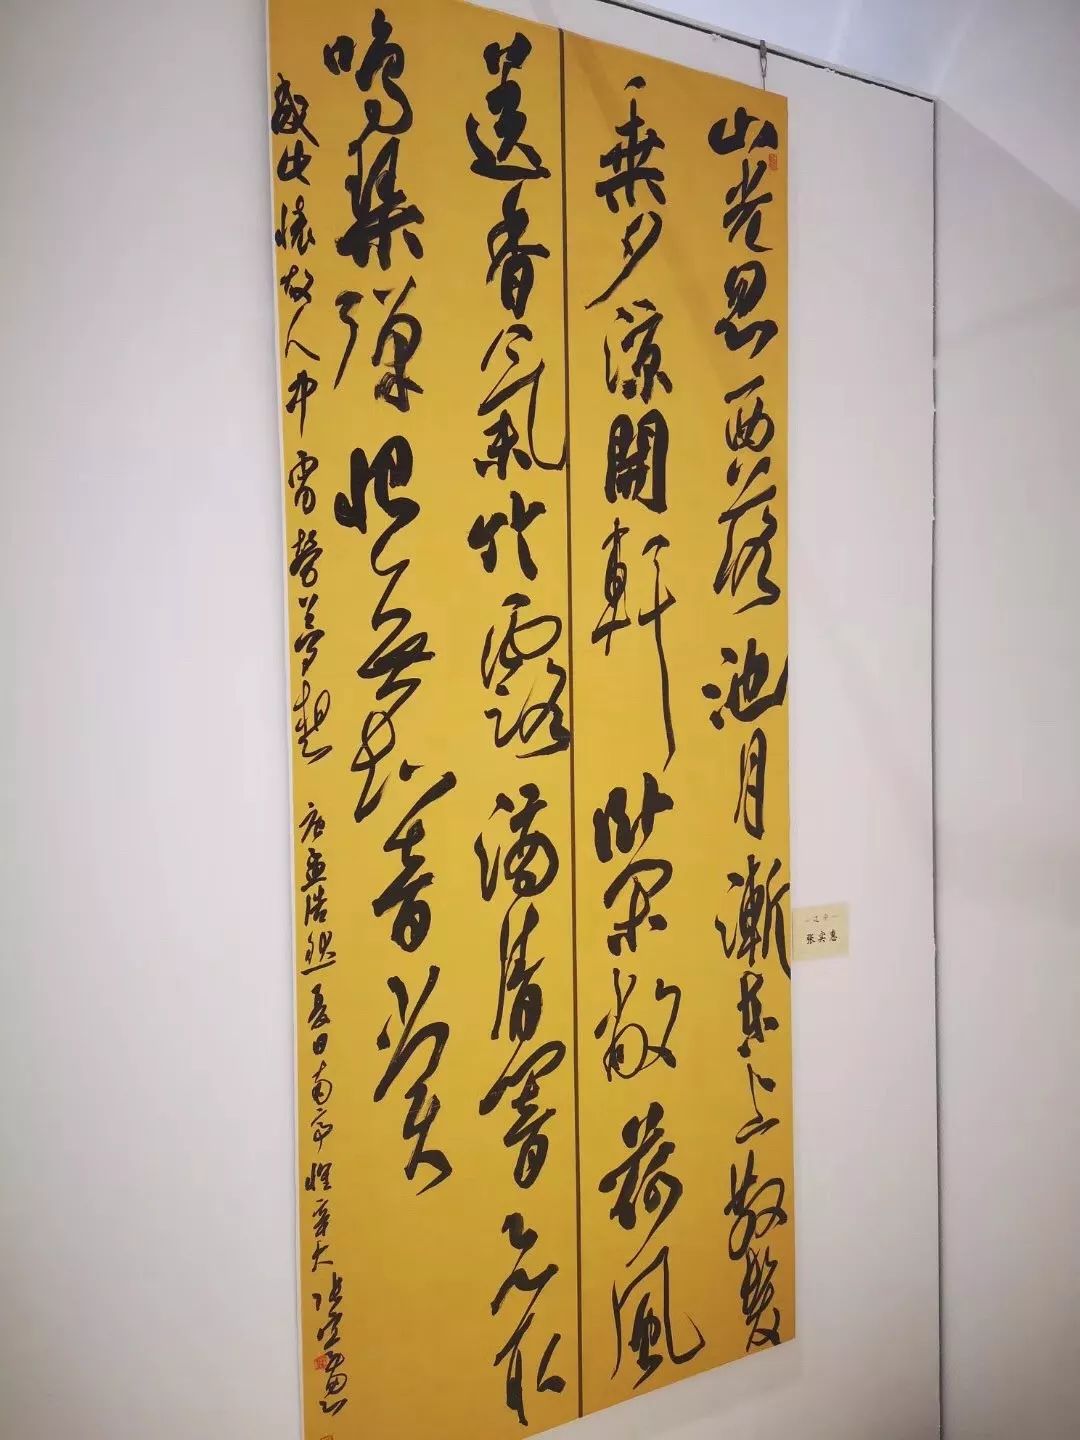 山光忽西落池月漸東上散髮
乘夕涼開軒臥閑敞荷風
送香氣竹露滴清響欲取
鳴琴彈恨無知音賞
感此懷故人中宵勞夢想 唐孟浩然夏日南亭懷辛大 張實惠
—辽宁—
张实惠